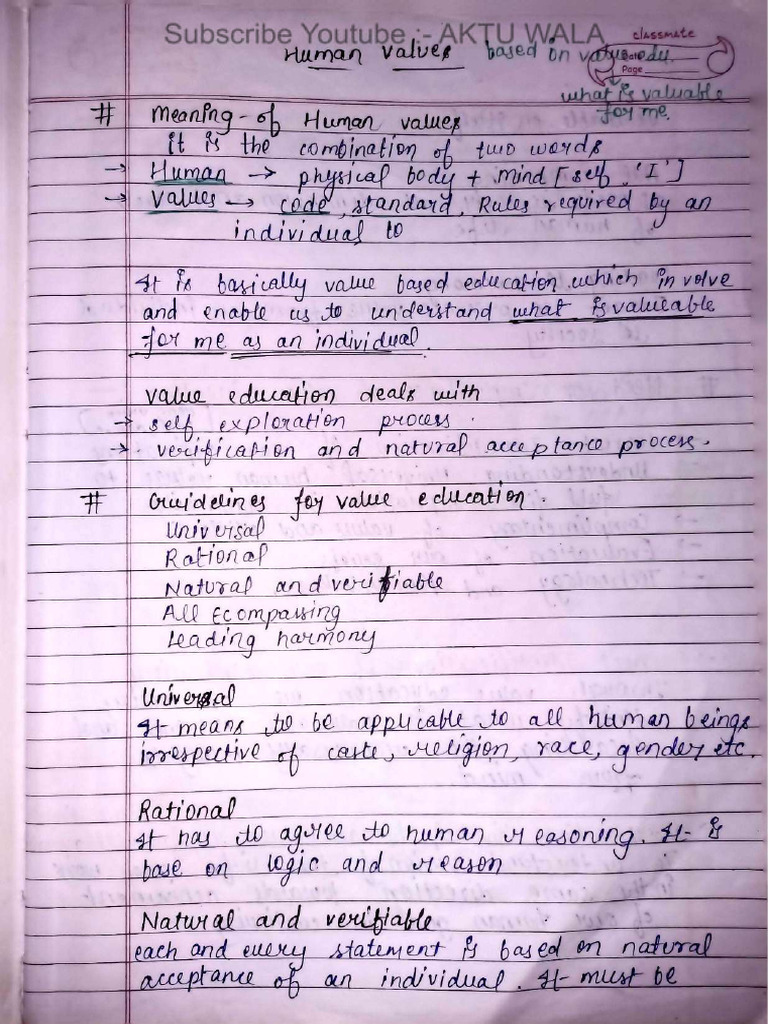 Subscribe Youtube :- AKTU WALA
classmate
Human Values based in value edu.
Page
what is valuable
for me.
# Meaning of Human values
it is the combination of two words
→ Human → physical body + mind [self, 'I']
→ Values → code, standard, Rules required by an
individual to
It is basically value based education which involve
and enable us to understand what is valueable
for me as an individual.
value education deals with
→ self exploration process.
→ verification and natural acceptance process.
# Guidelines for value education.
Universal
Rational
Natural and verifiable
All Ecompassing
Leading harmony
Universal
It means to be applicable to all human beings
irrespective of caste, religion, race, gender etc.
Rational
It has to agree to human reasoning. It is
base on logic and reason
Natural and verifiable
each and every statement is based on natural
acceptance of an individual. It must be